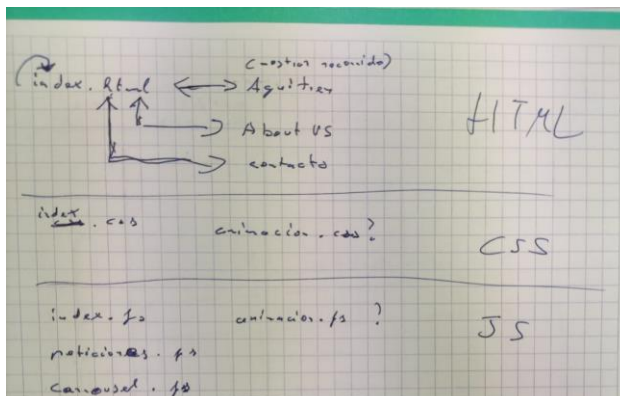 (mostrar recorrido)
index.html Aquitien
About US HTML
contacto
index.css animacion.css? CSS
index.js animacion.js ? JS
peticiones.js
carrousel.js